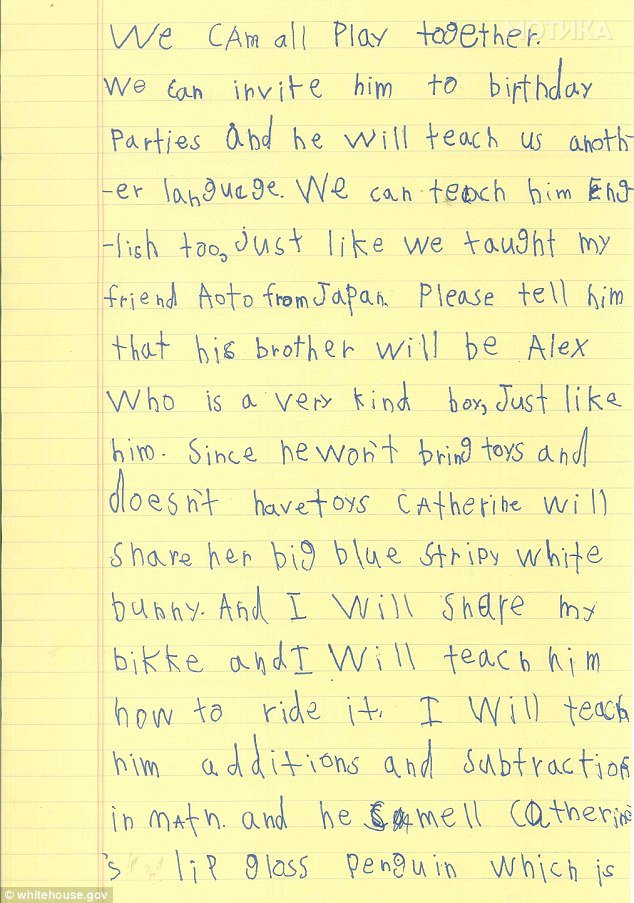 ЧОТИКА
We CAm all Play together.
We can invite him to birthday
Parties And he will teach us anoth-
-er language. We can teach him Eng
-lish too, just like we taught my
friend Aoto from Japan. Please tell him
that his brother will be Alex
Who is a very kind boy, Just like
him. Since he won't bring toys and
doesn't have toys CAtherine will
Share her big blue Stripy white
bunny. And I Will Share my
bikke and I Will teach him
how to ride it. I Will teach
him additions and Subtractions
in mAth. and he smell CAtherine
's lip gloss Penguin which is
© whitehouse.gov